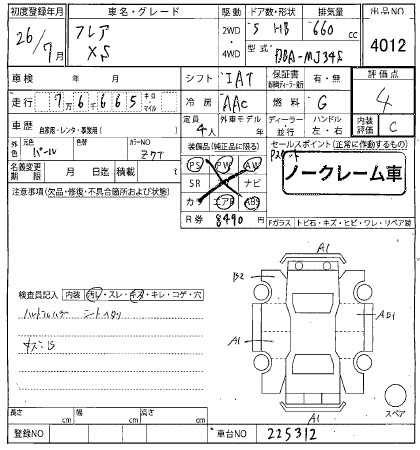 初度登録年月 車名・グレード 駆動 ドア数・形状 排気量 出品NO
26/7月 フレア XS 2WD・4WD 5 HB 660cc 4012
型式 DBA-MJ34S
車検 年 月 シフト IAT 保証書 新車時ディーラー発行 有・無 評価点 4
走行 7万6665キロマイル 冷房 AAC 燃料 G
車歴 自家用・レンタ・事業用( ) 定員 4人 外車モデル 年 ディーラー 並行 ハンドル 左・右 内装評価 C
外色 元色 パール 色替 カラーNO Z7T 装備品(純正品に限る) セールスポイント(正常に作動するもの)
PS PW AW
名義変更期限 月 日迄 積載量 t SR ナビ ノークレーム車
注意事項(欠品・修復・不具合箇所および状態) カワ エアB ABS
R券 8490円 Fガラス トビ石・キズ・ヒビ・ワレ・リペア跡
A1
B2
検査員記入 内装 汚レ・スレ・キズ・キレ・コゲ・穴
A1
スペア
A1
長さ cm 幅 cm 高さ cm
登録NO 車台NO 225312